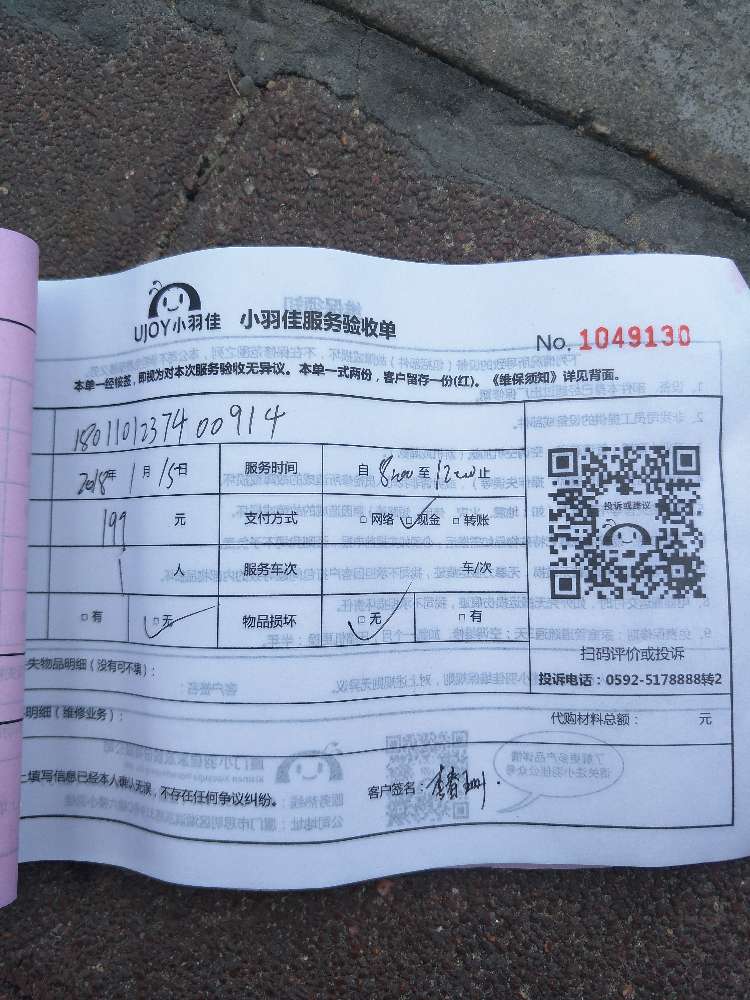 UJOY小羽佳 小羽佳服务验收单
No. 1049130
本单一经核签,即视为对本次服务验收无异议。本单一式两份,客户留存一份(红)。《维保须知》详见背面。
18011012374 00914
2018年 1 月 15日 服务时间 自 8:00 至 12:00 止
199 元 支付方式 □网络 □现金 □转账
投诉或建议
1 人 服务车次 车/次
□有 □无 物品损坏 □无 □有
扫码评价或投诉
失物品明细(没有可不填):
投诉电话:0592-5178888转2
明细(维修业务):
代购材料总额: 元
上填写信息已经本人确认无误,不存在任何争议纠纷。
客户签名: